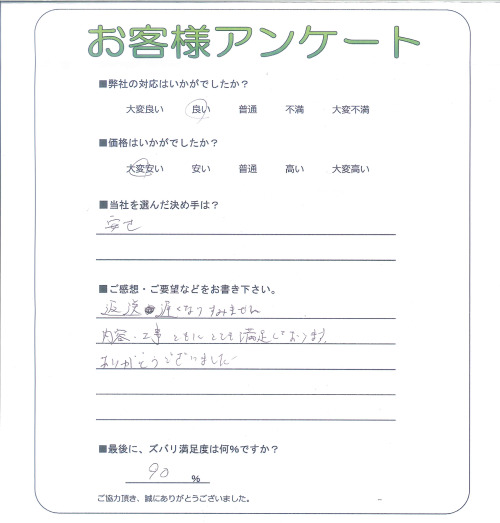 お客様アンケート
■弊社の対応はいかがでしたか？
大変良い 良い 普通 不満 大変不満
■価格はいかがでしたか？
大変安い 安い 普通 高い 大変高い
■当社を選んだ決め手は？
安さ
■ご感想・ご要望などをお書き下さい。
返済 遅くなりすみません
内容・工事 ともにとても満足しております。
ありがとうございました
■最後に、ズバリ満足度は何%ですか？
90 %
ご協力頂き、誠にありがとうございました。